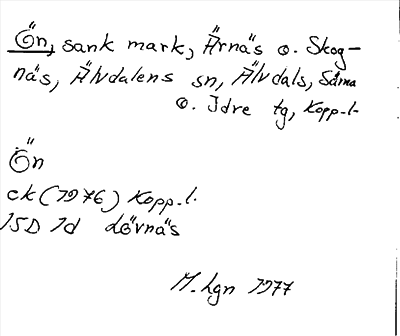 Ön, sank mark, Ärnäs o. Skog-
näs, Älvdalens sn, Älvdals, Särna
o. Idre tg, Kopp.l.
Ön
ck (1976) Kopp.l.
15D 1d Lövnäs
M. Lgn 1977